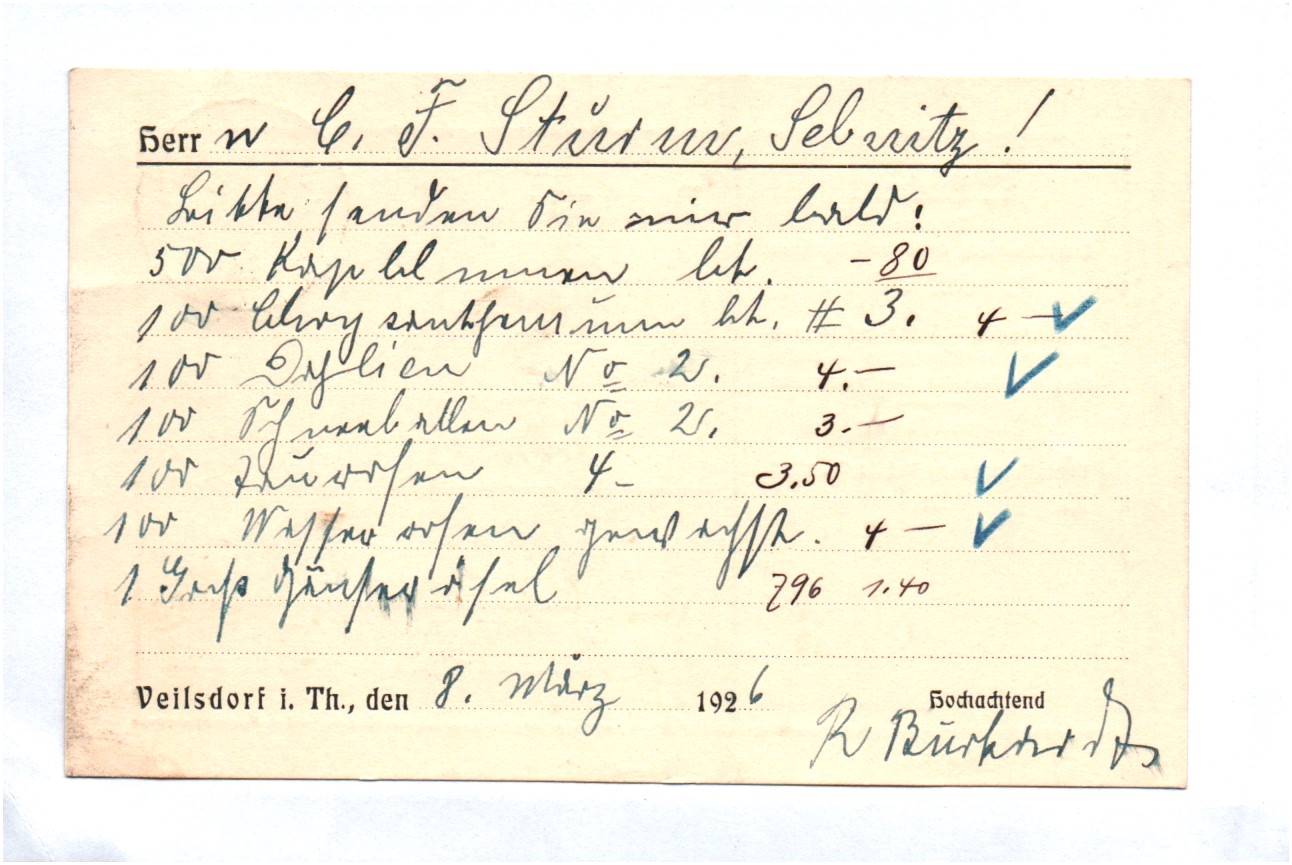 Herrn C. F. Sturm, Sebnitz!
Bitte senden Sie mir bald:
500 Kapblumen bt. -80
100 Chrysanthemum bt. # 3. 4 —
100 Dahlien No 2. 4.—
100 Schneeballen No 2. 3.—
100 Teerosen 4- 3.50
100 Wasserrosen gewachst. 4 —
1 Groß 796 1.40
Veilsdorf i. Th., den 8. März 1926 Hochachtend
R Burkhardt